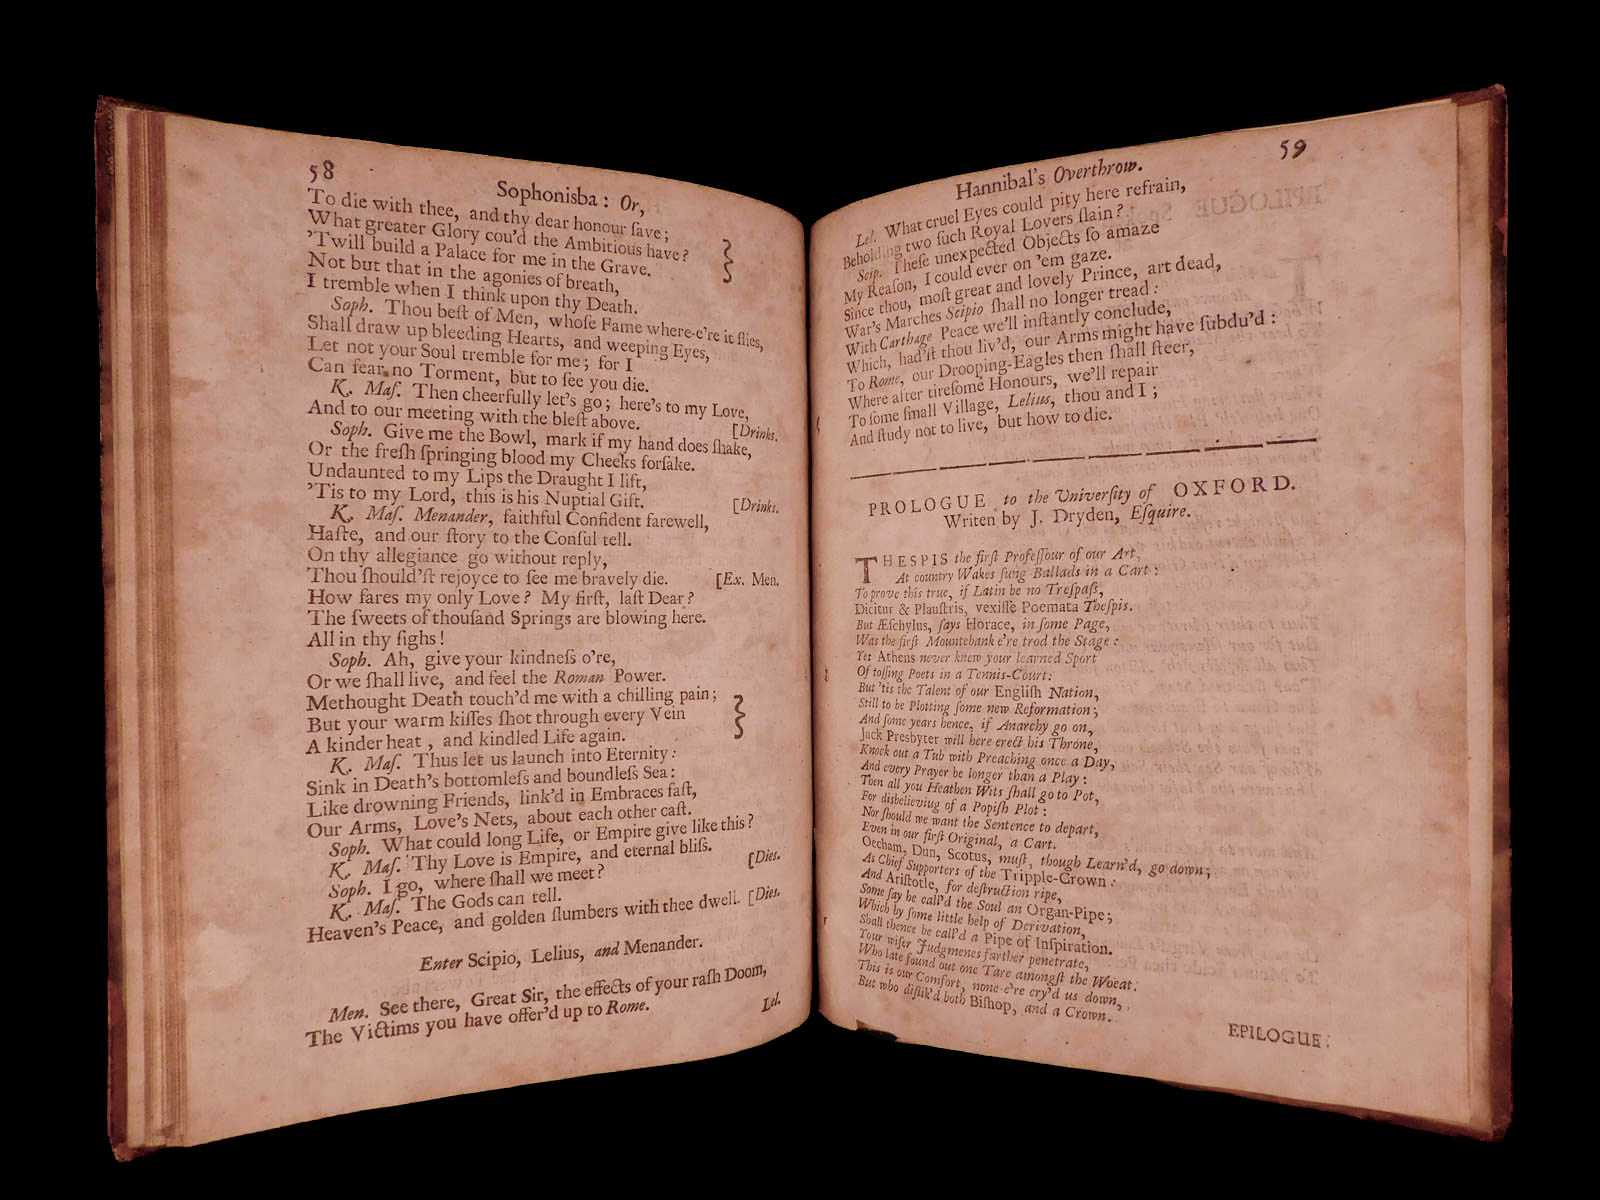 58
Sophonisba: Or,
To die with thee, and thy dear honour ſave;
What greater Glory cou'd the Ambitious have?
'Twill build a Palace for me in the Grave.
Not but that in the agonies of breath,
I tremble when I think upon thy Death.
Soph. Thou beſt of Men, whoſe Fame where-e're it flies,
Shall draw up bleeding Hearts, and weeping Eyes,
Let not your Soul tremble for me; for I
Can fear no Torment, but to ſee you die.
K. Maſ. Then cheerfully let's go; here's to my Love,
And to our meeting with the bleſt above. [Drinks.
Soph. Give me the Bowl, mark if my hand does ſhake,
Or the freſh ſpringing blood my Cheeks forſake.
Undaunted to my Lips the Draught I lift,
'Tis to my Lord, this is his Nuptial Gift. [Drinks.
K. Maſ. Menander, faithful Confident farewell,
Haſte, and our ſtory to the Conſul tell.
On thy allegiance go without reply,
Thou ſhould'ſt rejoyce to ſee me bravely die. [Ex. Men.
How fares my only Love? My firſt, laſt Dear?
The ſweets of thouſand Springs are blowing here.
All in thy ſighs!
Soph. Ah, give your kindneſs o're,
Or we ſhall live, and feel the Roman Power.
Methought Death touch'd me with a chilling pain;
But your warm kiſſes ſhot through every Vein
A kinder heat, and kindled Life again.
K. Maſ. Thus let us launch into Eternity:
Sink in Death's bottomleſs and boundleſs Sea:
Like drowning Friends, link'd in Embraces faſt,
Our Arms, Love's Nets, about each other caſt.
Soph. What could long Life, or Empire give like this?
K. Maſ. Thy Love is Empire, and eternal bliſs.
Soph. I go, where ſhall we meet? [Dies.
K. Maſ. The Gods can tell.
Heaven's Peace, and golden ſlumbers with thee dwell. [Dies.
Enter Scipio, Lelius, and Menander.
Men. See there, Great Sir, the effects of your raſh Doom,
The Victims you have offer'd up to Rome.
Lel.
59
Hannibal's Overthrow.
Lel. What cruel Eyes could pity here refrain,
Beholding two ſuch Royal Lovers ſlain?
Scip. Theſe unexpected Objects ſo amaze
My Reaſon, I could ever on 'em gaze.
Since thou, moſt great and lovely Prince, art dead,
War's Marches Scipio ſhall no longer tread:
With Carthage Peace we'll inſtantly conclude,
Which, had'ſt thou liv'd, our Arms might have ſubdu'd:
To Rome, our Drooping-Eagles then ſhall ſteer,
Where after tireſome Honours, we'll repair
To ſome ſmall Village, Lelius, thou and I;
And ſtudy not to live, but how to die.
PROLOGUE to the Univerſity of OXFORD.
Writen by J. Dryden, Eſquire.
THESPIS the firſt Profeſſour of our Art,
At country Wakes ſung Ballads in a Cart:
To prove this true, if Latin be no Treſpaſs,
Dicitur & Plauſtris, vexiſſe Poemata Theſpis.
But Æſchylus, ſays Horace, in ſome Page,
Was the firſt Mountebank e're trod the Stage:
Yet Athens never knew your learned Sport
Of toſſing Poets in a Tennis-Court:
But 'tis the Talent of our Engliſh Nation,
Still to be Plotting ſome new Reformation;
And ſome years hence, if Anarchy go on,
Jack Presbyter will here erect his Throne,
Knock out a Tub with Preaching once a Day,
And every Prayer be longer than a Play:
Then all you Heathen Wits ſhall go to Pot,
For disbelieving of a Popiſh Plot:
Nor ſhould we want the Sentence to depart,
Even in our firſt Original, a Cart.
Occham, Dun, Scotus, muſt, though Learn'd, go down;
As Chief Supporters of the Tripple-Crown:
And Ariſtotle, for deſtruction ripe,
Some ſay be call'd the Soul an Organ-Pipe;
Which by ſome little help of Derivation,
Shall thence be call'd a Pipe of Inſpiration.
Your wiſer Judgmenes farther penetrate,
Who late found out one Tare amongſt the Wheat.
This is our Comfort, none e're cry'd us down,
But who diſlik'd both Biſhop, and a Crown.
EPILOGUE: